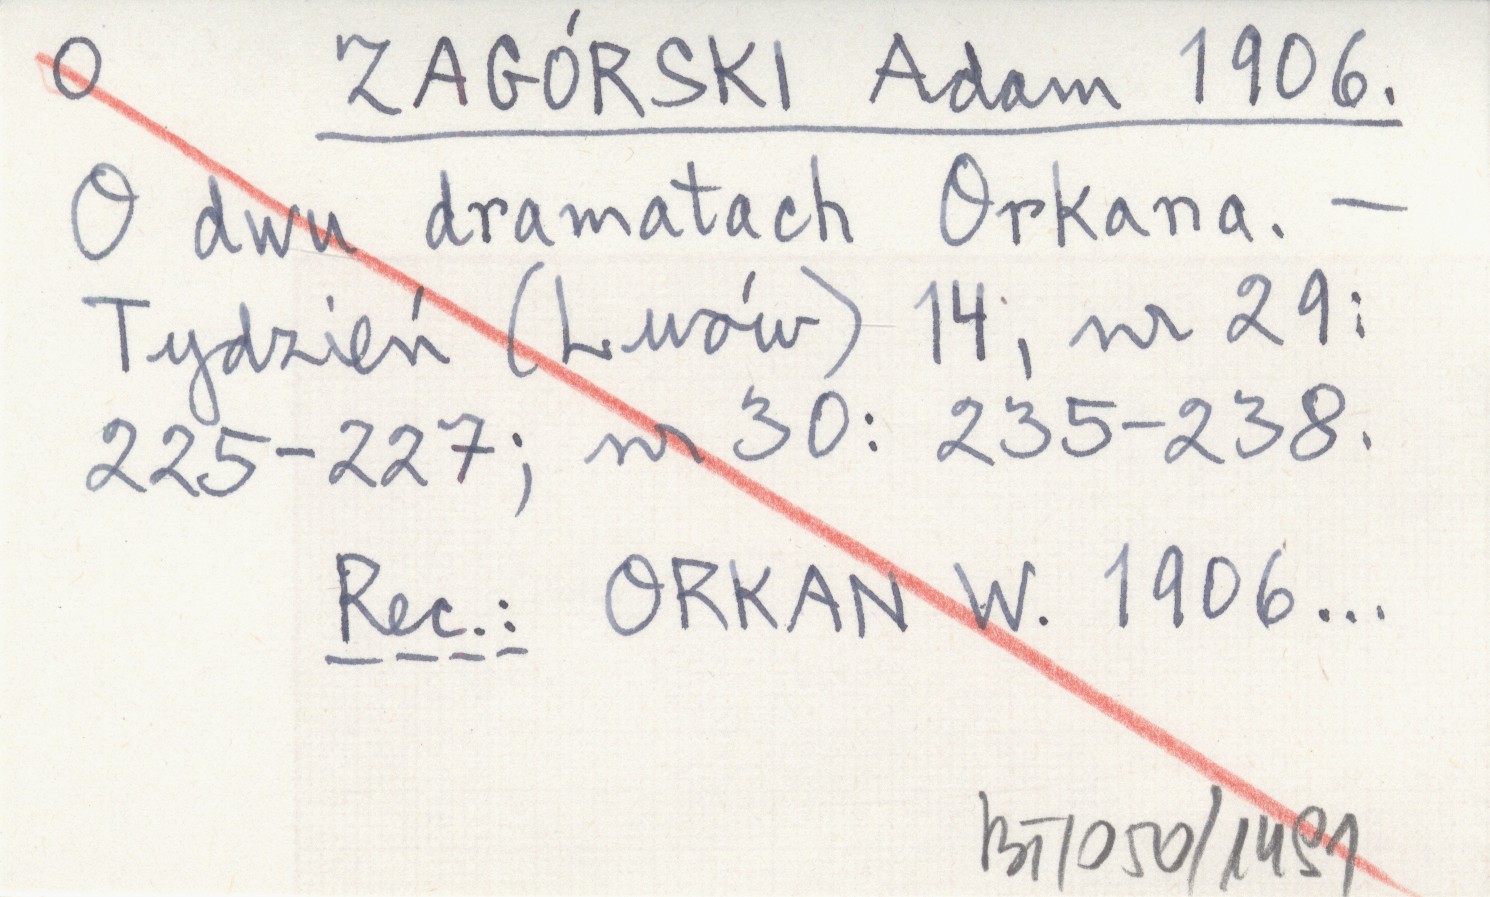 O ZAGÓRSKI Adam 1906.
O dwu dramatach Orkana. —
Tydzień (Lwów) 14, nr 29:
225-227; nr 30: 235-238.
Rec.: ORKAN W. 1906...
BT/050/1491